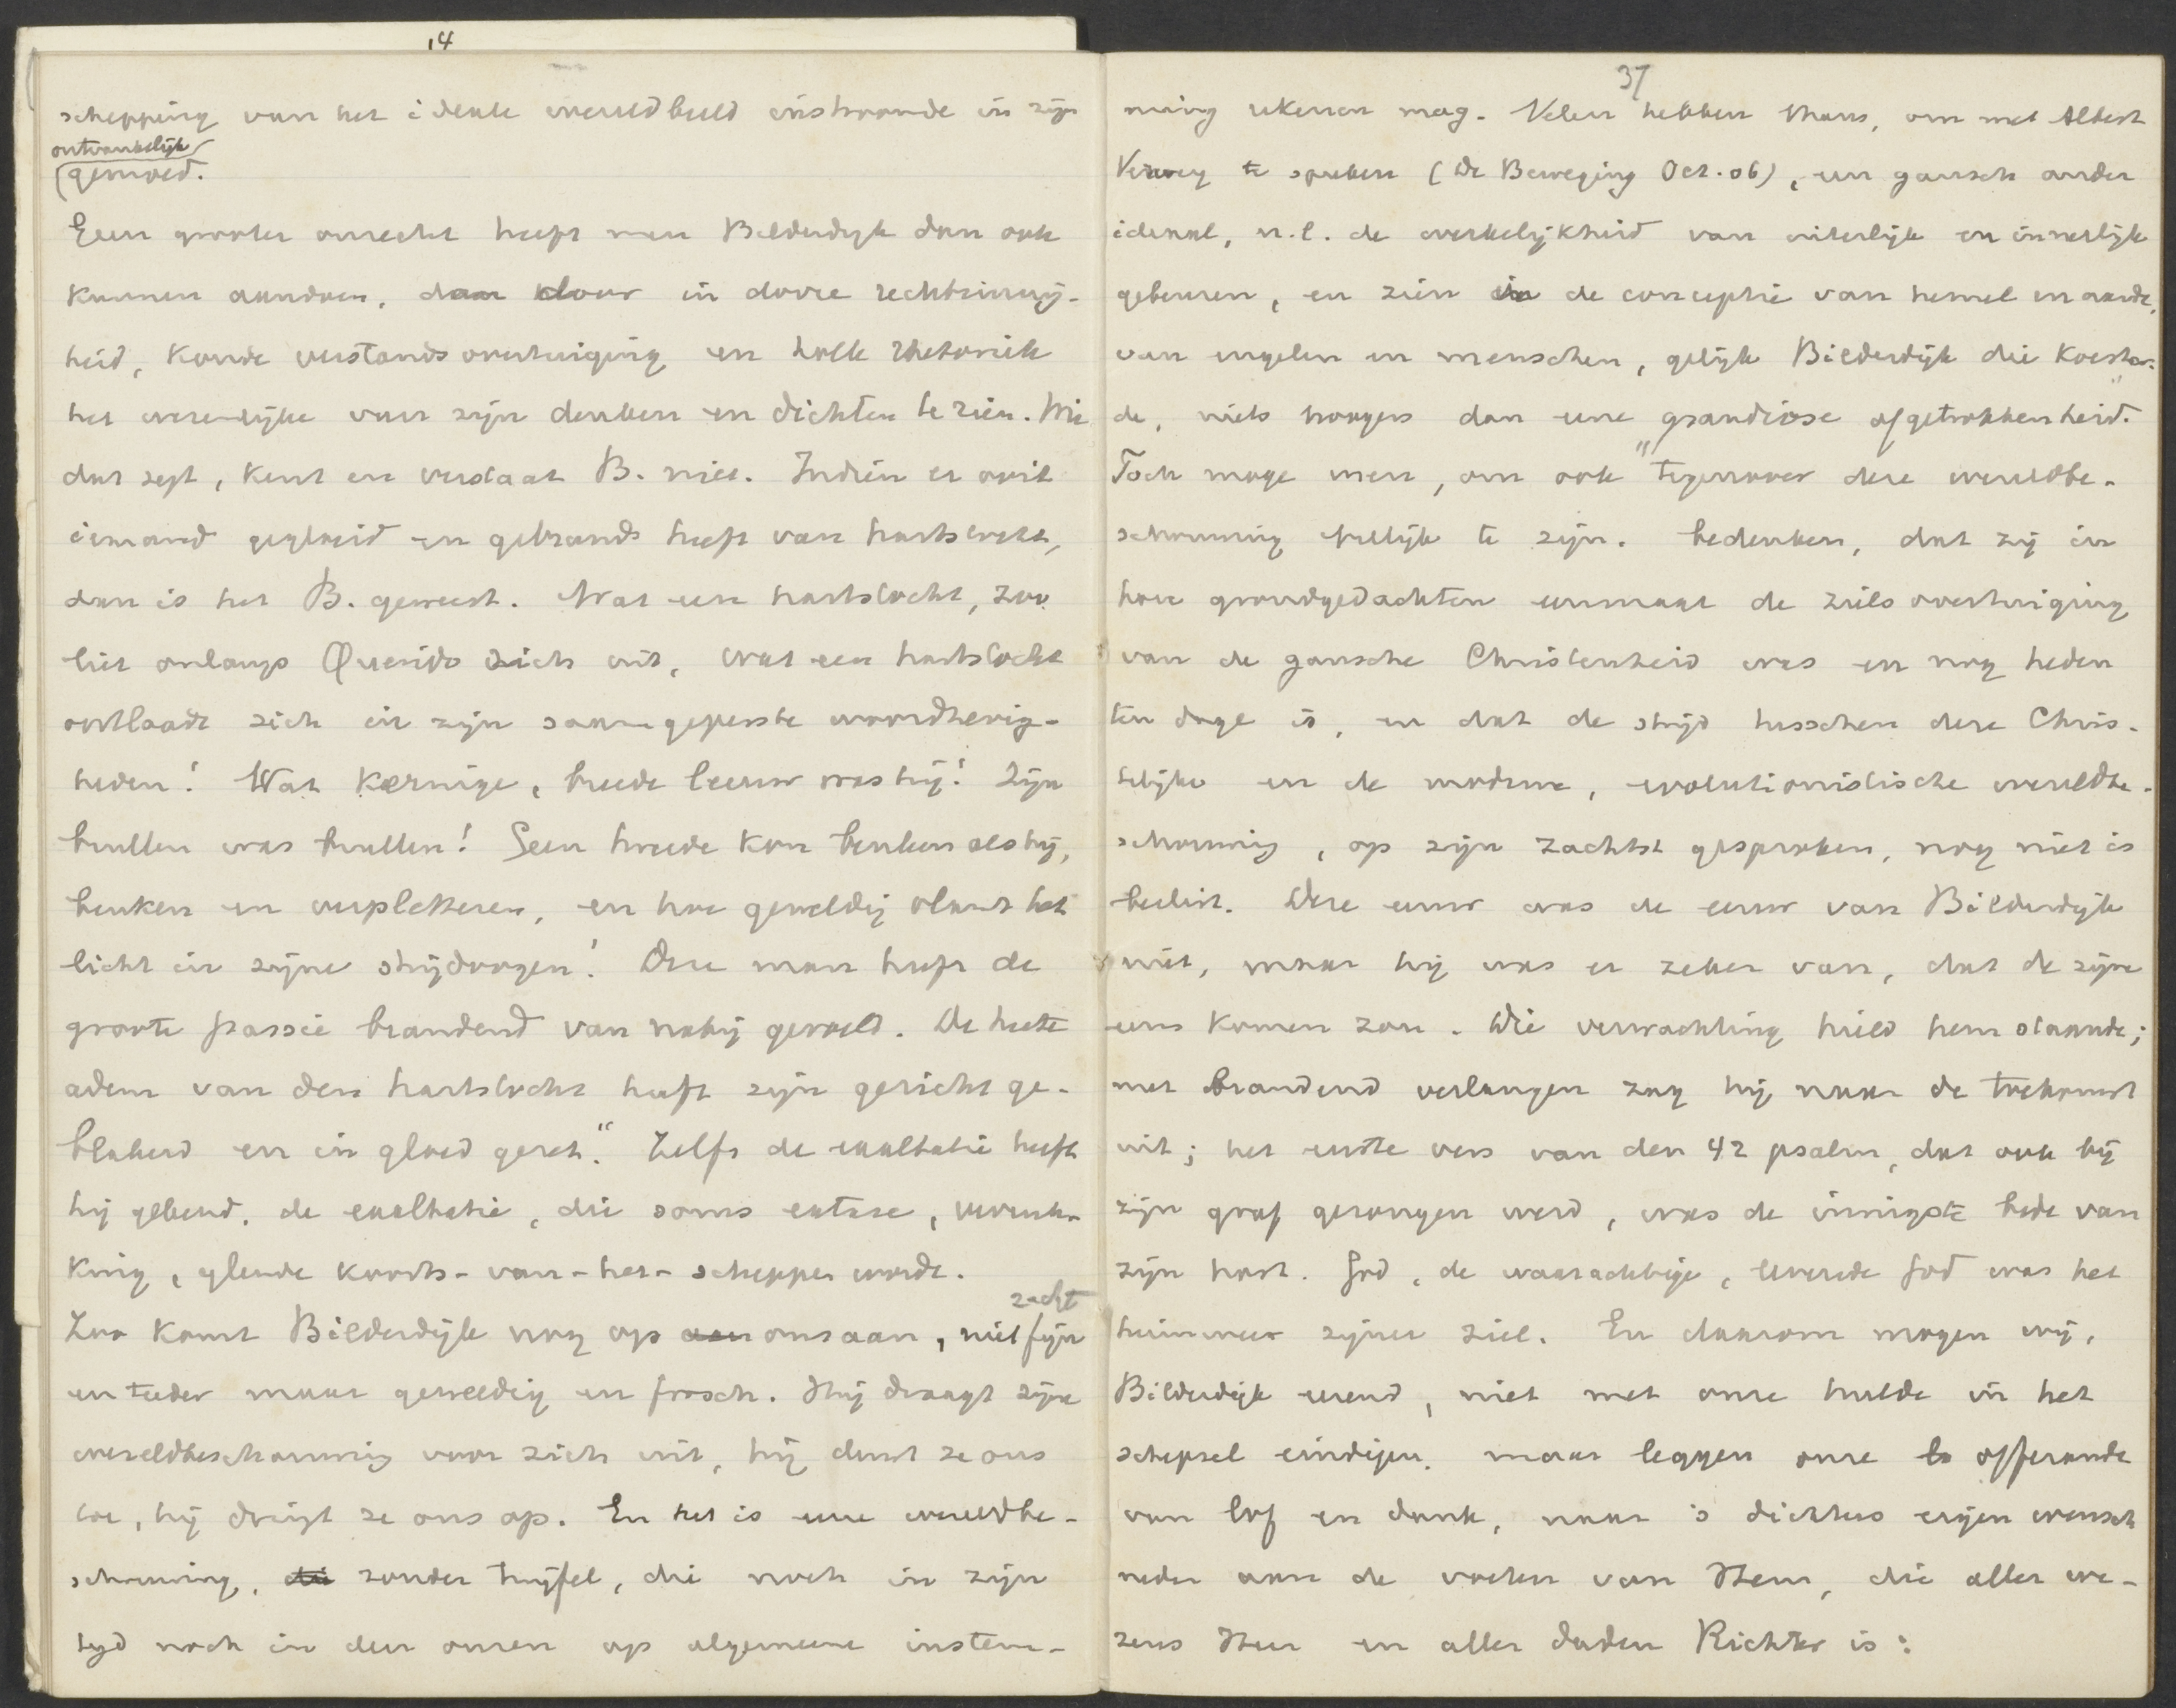 14
schepping van het ideale wereldbeeld instroomde in zijn
ontvankelijk
gemoed.
Geen grooter onrecht heeft men Bilderdijk dan ook
kunnen aandoen, dan door in dorre rechtzinnig-
heid, koude verstandsovertuiging en holle rhetoriek
het wezenlijke van zijn denken en dichten te zien. Wie
dat zegt, kent en verstaat B. niet. Indien er ooit
iemand gegloeid en gebrand heeft van hartstocht,
dan is het B. geweest. Wat een hartstocht, zoo
liet onlangs Querido zich uit, wat een hartstocht
ontlaadt zich in zijn saamgeperste woordhevig-
heden! Wat kernige, breede leeuw was hij! Zijn
brullen was brullen! Geen tweede kon beuken als hij,
beuken en verpletteren, en hoe geweldig vlamt het
licht in zijne strijdoogen! Deze man heeft de
groote passie brandend van nabij gevoeld. De heete
adem van den hartstocht heeft zijn gezicht ge-
blakerd en in gloed gezet." Zelfs de exaltatie heeft
hij gekend, de exaltatie, die soms extase, verruk-
king, gloende koorts-van-het-scheppen wordt.
zacht
Zoo komt Bilderdijk nog op aan ons aan, niet fijn
en teeder maar geweldig en forsch. Hij draagt zijne
wereldbeschouwing voor zich uit, hij duwt ze ons
toe, hij dringt ze ons op. En het is eene wereldbe-
schouwing, die zonder twijfel, die noch in zijn
tijd noch in den onzen op algemeene instem-
37
ming rekenen mag. Velen hebben thans, om met Albert
Verwey te spreken (De Beweging Oct. 06), een gansch ander
ideaal, n.l. de werkelijkheid van uiterlijk en innerlijk
gebeuren, en zien in de conceptie van hemel en aarde,
van engelen en menschen, gelijk Bilderdijk die koester-
de, niets hoogers dan eene "grandiose afgetrokkenheid."
Toch moge men, om ook tegenover deze wereldbe-
schouwing billijk te zijn, bedenken, dat zij in
hare grondgedachten eenmaal de zielsovertuiging
van de gansche Christenheid was en nog heden
ten dage is, en dat de strijd tusschen deze Chris-
telijke en de moderne, evolutionistische wereldbe-
schouwing, op zijn zachtst gesproken, nog niet is
beslist. Deze eeuw was de eeuw van Bilderdijk
niet, maar hij was er zeker van, dat de zijne
eens komen zou. Die verwachting hield hem staande;
met brandend verlangen zag hij naar de toekomst
uit; het eerste vers van den 42 psalm, dat ook bij
zijn graf gezongen werd, was de innigste bede van
zijn hart. God, de waarachtige, levende God was het
heimwee zijner ziel. En daarom mogen wij,
Bilderdijk eerend, niet met onze hulde in het
schepsel eindigen, maar leggen onze lo offerande
van lof en dank, naar 's dichters eigen wensch
neder aan de voeten van Hem, die aller we-
zens Heer en aller daden Richter is: